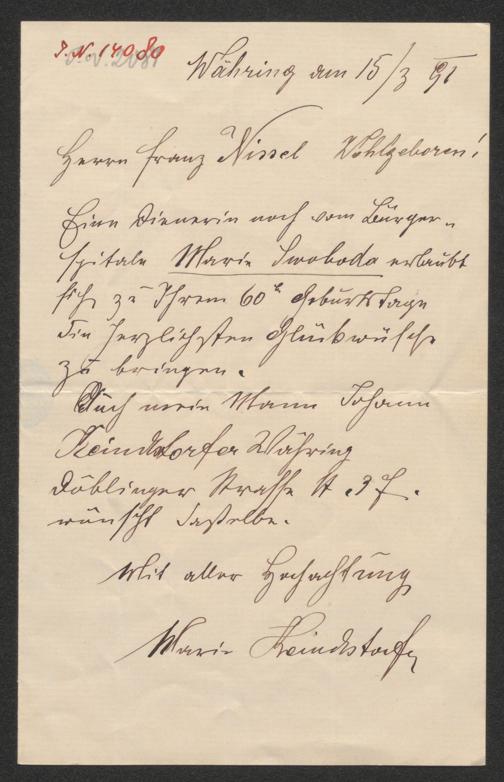 J.N. 14080
J.N. 2081
Währing am 15/3 91
Herrn Franz Nissel Wohlgeboren!
Eine Dienerin noch vom Bürger-
spitale Marie Swoboda erlaubt
sich zu Ihrem 60t Geburtstage
die herzlichsten Glückwünsche
zu bringen.
Auch mein Mann Johann
Reindstorfer Währing
Döblinger Strasse N 37.
wünscht dasselbe.
Mit aller Hochachtung
Marie Reindstorfer